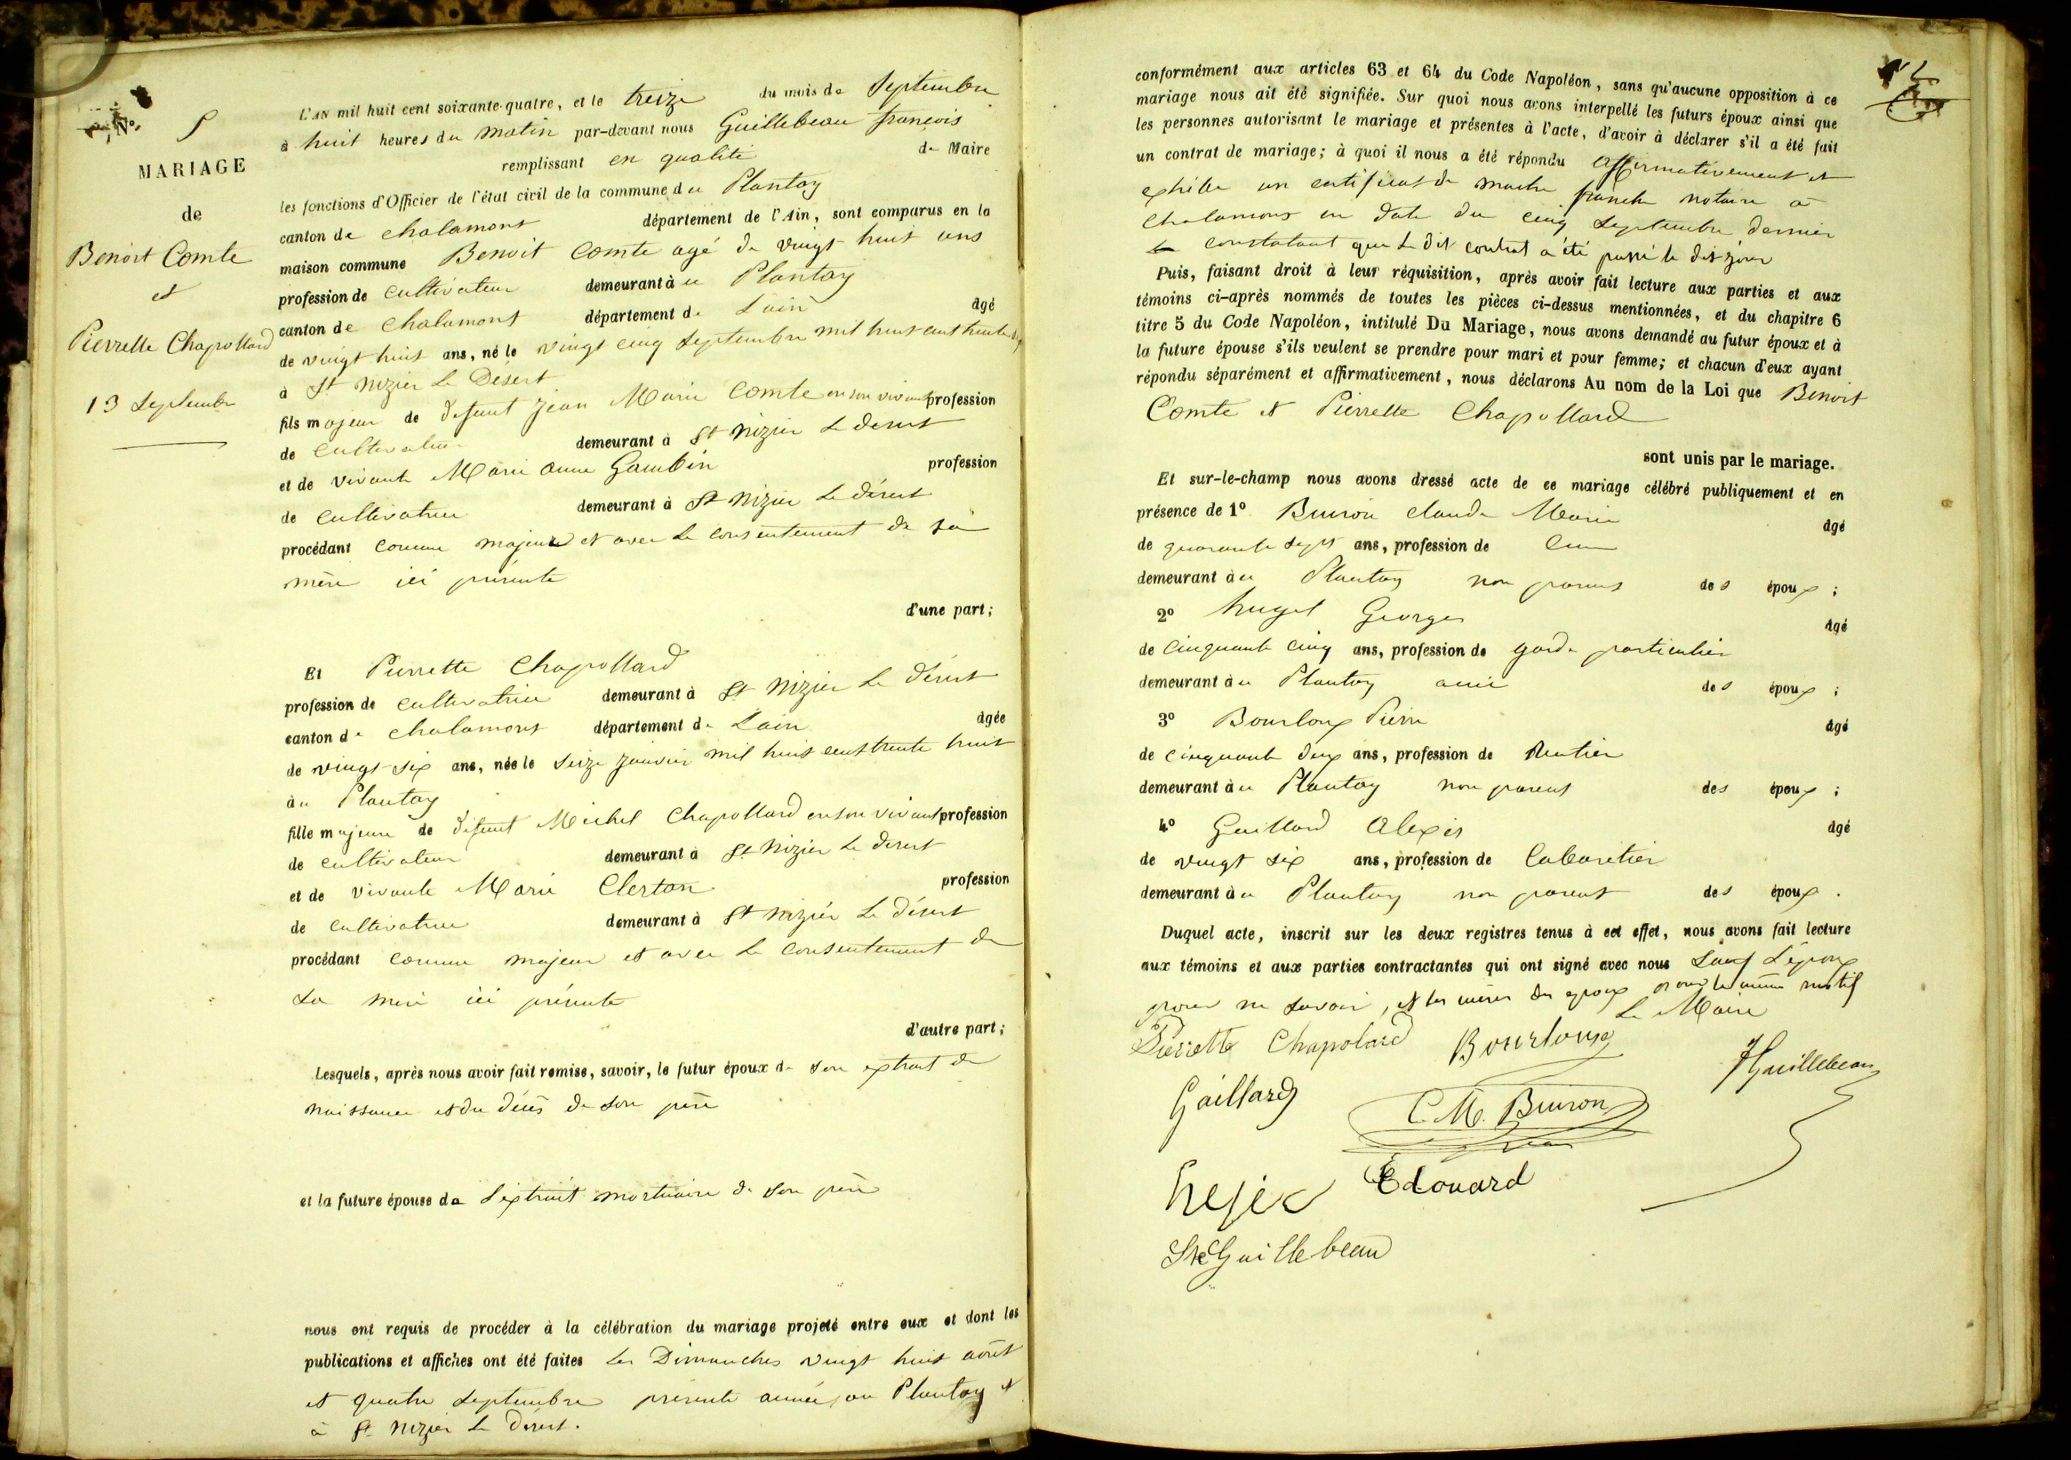 Nº 5
MARIAGE
de
Benoit Comte
et
Pierrette Chapollard
13 Septembre
L'AN mil huit cent soixante-quatre, et le treize du mois de Septembre
à huit heures du matin par-devant nous Guillebeau françois
remplissant en qualité de Maire
les fonctions d'Officier de l'état civil de la commune du Plantay
canton de chalamont département de l'Ain, sont comparus en la
maison commune Benoit Comte agé de vingt huit ans
profession de cultivateur demeurant à u Plantay
canton de Chalamont département de Lain âgé
de vingt huit ans, né le vingt cinq Septembre mil huit cent trente
à St Nizier Le Désert
fils majeur de défunt Jean Marie Comte en son vivant profession
de cultivateur demeurant à St Nizier Le désert
et de vivante Marie anne Gambin profession
de cultivatrice demeurant à St Nizier Le désert
procédant comme majeur et avec le consentement de sa
mère ici présente
d'une part;
Et Pierrette Chapollard
profession de cultivatrice demeurant à St Nizier Le désert
canton de chalamont département de Lain âgée
de vingt six ans, née le seize janvier mil huit cent trente huit
à u Plantay
fille majeure de défunt Michel Chapollard en son vivant profession
de cultivateur demeurant à St Nizier Le désert
et de vivante Marie Clerton profession
de cultivatrice demeurant à St Nizier Le désert
procédant comme majeur et avec le consentement de
sa mère ici présente
d'autre part;
Lesquels, après nous avoir fait remise, savoir, le futur époux de son extrait de
naissance et du décès de son père
et la future épouse de l'extrait mortuaire de son père
nous ont requis de procéder à la célébration du mariage projeté entre eux et dont les
publications et affiches ont été faites les Dimanches vingt huit août
et quatre septembre présente année, au Plantay et
à St Nizier le désert.
conformément aux articles 63 et 64 du Code Napoléon, sans qu'aucune opposition à ce
mariage nous ait été signifiée. Sur quoi nous avons interpellé les futurs époux ainsi que
les personnes autorisant le mariage et présentes à l'acte, d'avoir à déclarer s'il a été fait
un contrat de mariage; à quoi il nous a été répondu affirmativement et
exhibé un certificat de maitre franche notaire à
Chalamont en date du cinq Septembre dernier
constatant que le dit contrat a été passé le dit jour
Puis, faisant droit à leur réquisition, après avoir fait lecture aux parties et aux
témoins ci-après nommés de toutes les pièces ci-dessus mentionnées, et du chapitre 6
titre 5 du Code Napoléon, intitulé Du Mariage, nous avons demandé au futur époux et à
la future épouse s'ils veulent se prendre pour mari et pour femme; et chacun d'eux ayant
répondu séparément et affirmativement, nous déclarons Au nom de la Loi que Benoit
Comte et Pierrette Chapollard
sont unis par le mariage.
Et sur-le-champ nous avons dressé acte de ce mariage célébré publiquement et en
présence de 1º Buiron Claude Marie âgé
de quarante sept ans, profession de
demeurant à u Plantay non parent des époux;
2º huget Georges âgé
de cinquante cinq ans, profession de garde particulier
demeurant à u Plantay ami des époux;
3º Bourloux Pierre âgé
de cinquante deux ans, profession de Rentier
demeurant à u Plantay non parent des époux;
4º Gaillard Alexis âgé
de vingt six ans, profession de Cabaretier
demeurant à u Plantay non parent des époux.
Duquel acte, inscrit sur les deux registres tenus à cet effet, nous avons fait lecture
aux témoins et aux parties contractantes qui ont signé avec nous Sauf l'époux
pour ne savoir, et les mères des époux pour le même motif
Le Maire
Pierrette Chapolard Bourloux
Guillebeau
Gaillard C. M. Buiron
Edouard
Guillebeau